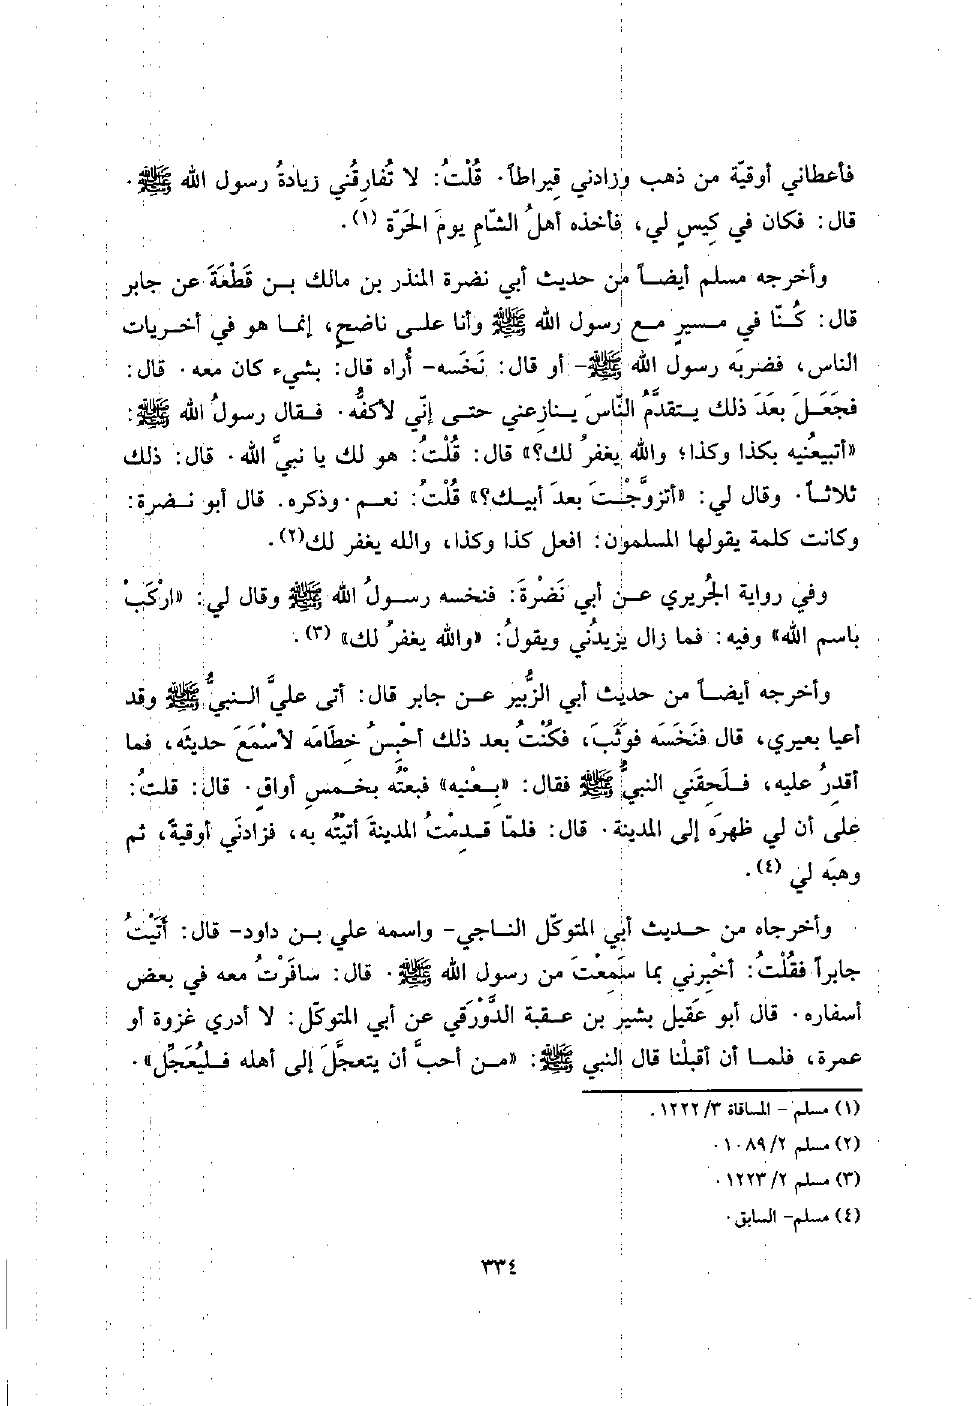 فأعطاني أوقيّة من ذهب وزادني قيراطاً. قُلْتُ: لا تُفارقُني زيادةُ رسول الله ﷺ.
قال: فكان في كِيسٍ لي، فأخذه أهلُ الشّامِ يومَ الحَرّة (١).
وأخرجه مسلم أيضاً من حديث أبي نضرة المنذر بن مالك بن قَطْعَةَ عن جابر
قال: كُنّا في مسيرٍ مع رسول الله ﷺ وأنا على ناضحٍ، إنما هو في أخريات
الناس، فضربَه رسول الله ﷺ- أو قال: نَخَسه- أُراه قال: بشيء كان معه. قال:
فجَعَلَ بعَدَ ذلك يتقدَّمُ النّاسَ ينازعني حتى إنّي لأكفُّه. فقال رسولُ الله ﷺ:
«أتبيعُنيه بكذا وكذا؛ والله يغفرُ لك؟» قال: قُلْتُ: هو لك يا نبيَّ الله. قال: ذلك
ثلاثاً. وقال لي: «أتزوَّجْتَ بعدَ أبيك؟» قُلْتُ: نعم. وذكره. قال أبو نضرة:
وكانت كلمة يقولها المسلمون: افعل كذا وكذا، والله يغفر لك(٢).
وفي رواية الجُريري عن أبي نَضْرةَ: فنخسه رسولُ الله ﷺ وقال لي: «ارْكَبْ
باسم الله» وفيه: فما زال يزيدُني ويقولُ: «والله يغفرُ لك» (٣).
وأخرجه أيضاً من حديث أبي الزُّبير عن جابر قال: أتى عليَّ النبيُّ ﷺ وقد
أعيا بعيري، قال فنَخَسَه فوثَبَ، فكُنْتُ بعد ذلك أحْبِسُ خِطَامَه لأسْمَعَ حديثَه، فما
أقدِرُ عليه، فلَحِقَني النبيُّ ﷺ فقال: «بِعْنِيه» فبعتُه بخمسِ أواقٍ. قال: قلتُ:
على أن لي ظهرَه إلى المدينة. قال: فلمّا قدِمْتُ المدينةَ أتيْتُه به، فزادَني أوقيةً، ثم
وهبَه لي (٤).
وأخرجاه من حديث أبي المتوكّل الناجي- واسمه علي بن داود- قال: أتَيْتُ
جابراً فقُلْتُ: أخْبِرني بما سَمِعْتَ من رسول الله ﷺ. قال: سافَرْتُ معه في بعض
أسفاره. قال أبو عَقيل بشير بن عقبة الدَّوْرَقي عن أبي المتوكّل: لا أدري غزوة أو
عمرة، فلما أن أقبلْنا قال النبي ﷺ: «من أحبَّ أن يتعجَّلَ إلى أهله فليُعَجِّل».
(١) مسلم - المساقاة ١٢٢٢/٣.
(٢) مسلم ١٠٨٩/٢.
(٣) مسلم ١٢٢٣/٢.
(٤) مسلم- السابق.
٣٣٤